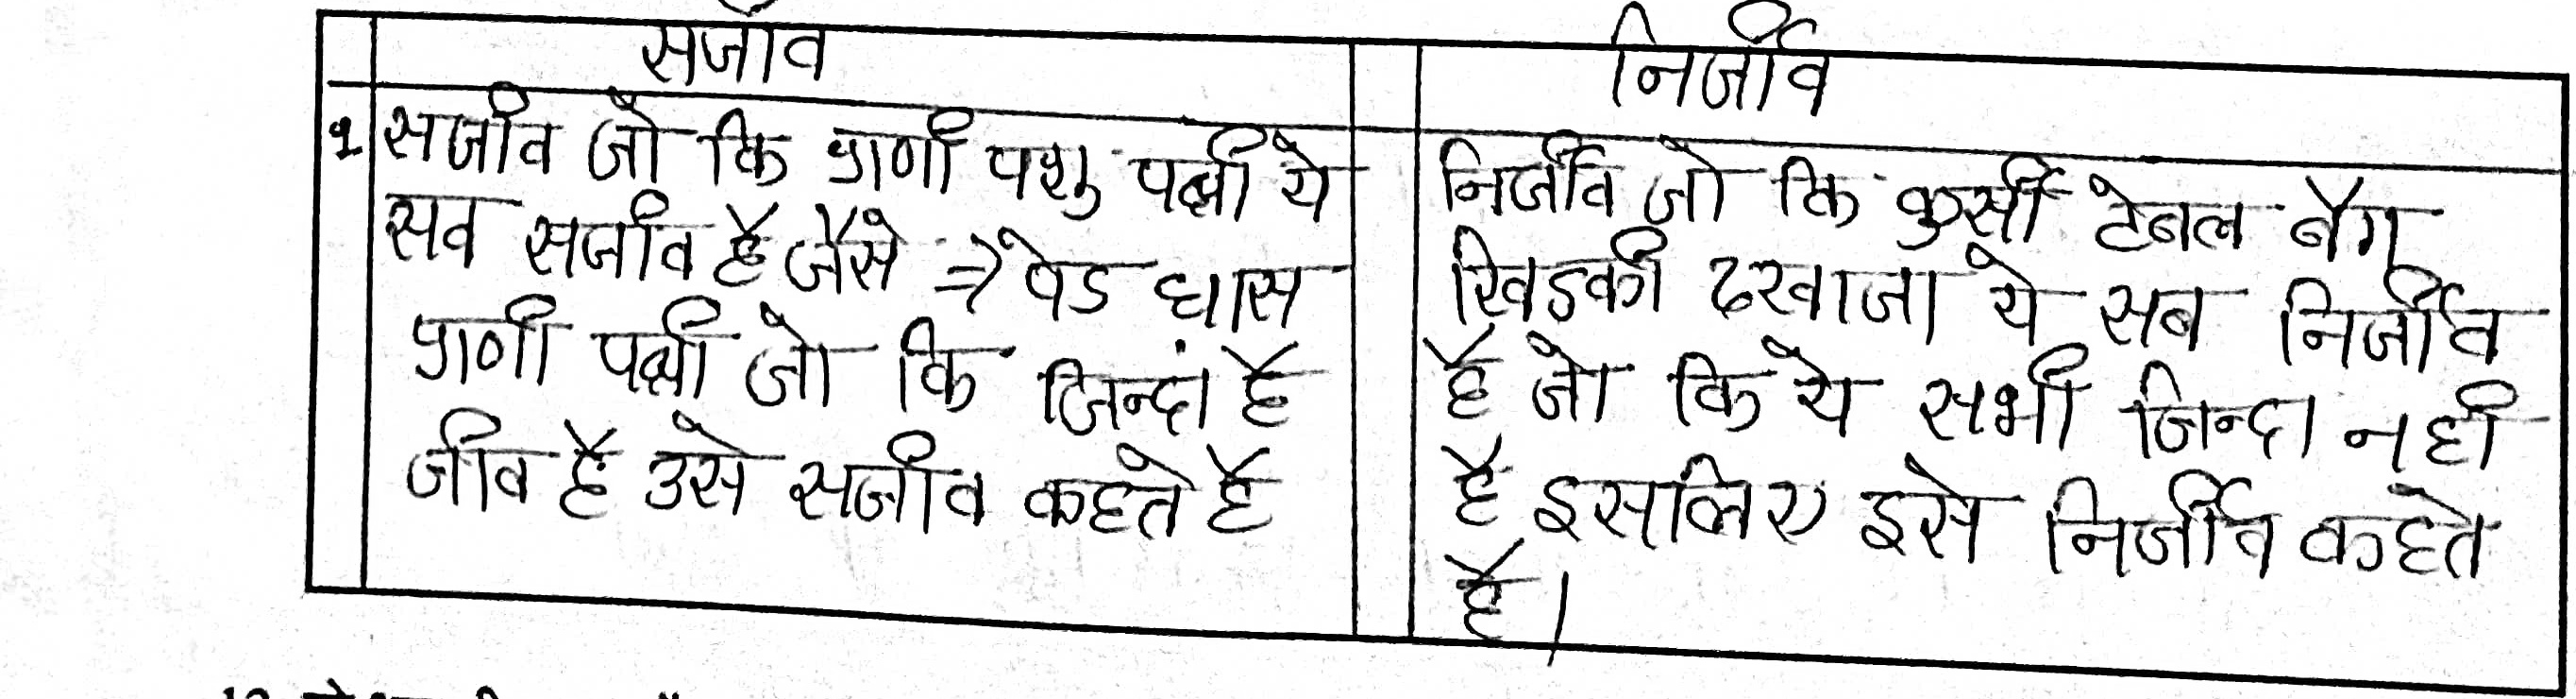 सजीव
निर्जीव
१ सजीव जो कि प्राणी पशु पक्षी ये
सव सजीव है जैसे ⇒ पेड घास
प्राणी पक्षी जो कि जिन्दां है
जीव है उसे सजीव कहते है
निर्जीव जो कि कुर्सी टेबल बैग
खिडकी दरवाजा ये सब निर्जीव
है जो कि ये सभी जिन्दा नही
है इसलिए इसे निर्जीव कहते
है।